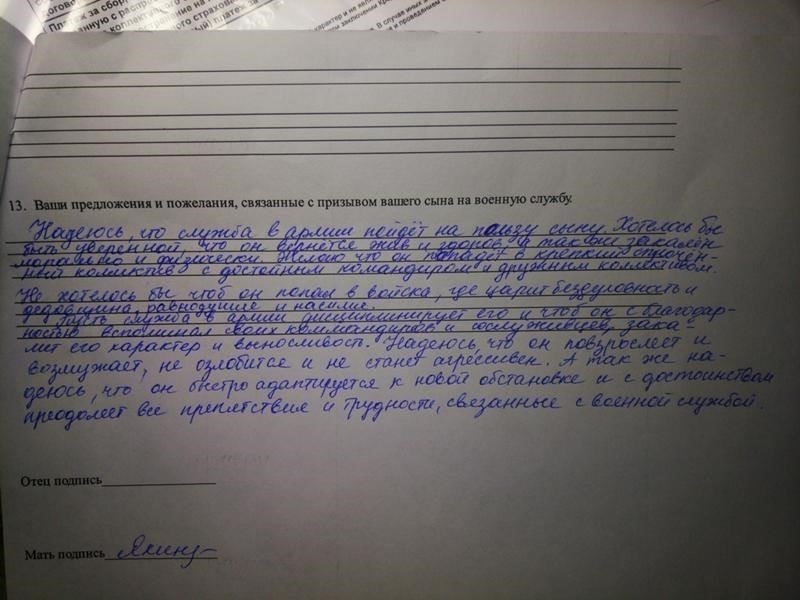 Платеж за сбор
нную с распро
коллективного
страхование на
ного страхова
платеж за
характер и не явл
заключении кра
В случае иных
и проведением с
13. Ваши предложения и пожелания, связанные с призывом вашего сына на военную службу.
Надеюсь, что служба в армии пойдёт на пользу сыну. Хотелось бы
быть уверенной, что он вернётся жив и здоров, а так же закалён
морально и физически. Желаю что он попадёт в крепкий, сплочён-
ный коллектив с достойным командиром и дружным коллективом.
Не хотелось бы чтоб он попал в войска, где царит бездуховность и
дедовщина, равнодушие и насилие.
Пусть служба в армии дисциплинирует его и чтоб он с благодар-
ностью вспоминал своих коммандиров и сослуживцев, зака-
лит его характер и выносливость. Надеюсь, что он повзрослеет и
возмужает, не озлобится и не станет агрессивен. А так же на-
деюсь, что он быстро адаптируется к новой обстановке и с достоинством
преодолеет все препятствия и трудности, связанные с военной службой.
Отец подпись
Мать подпись